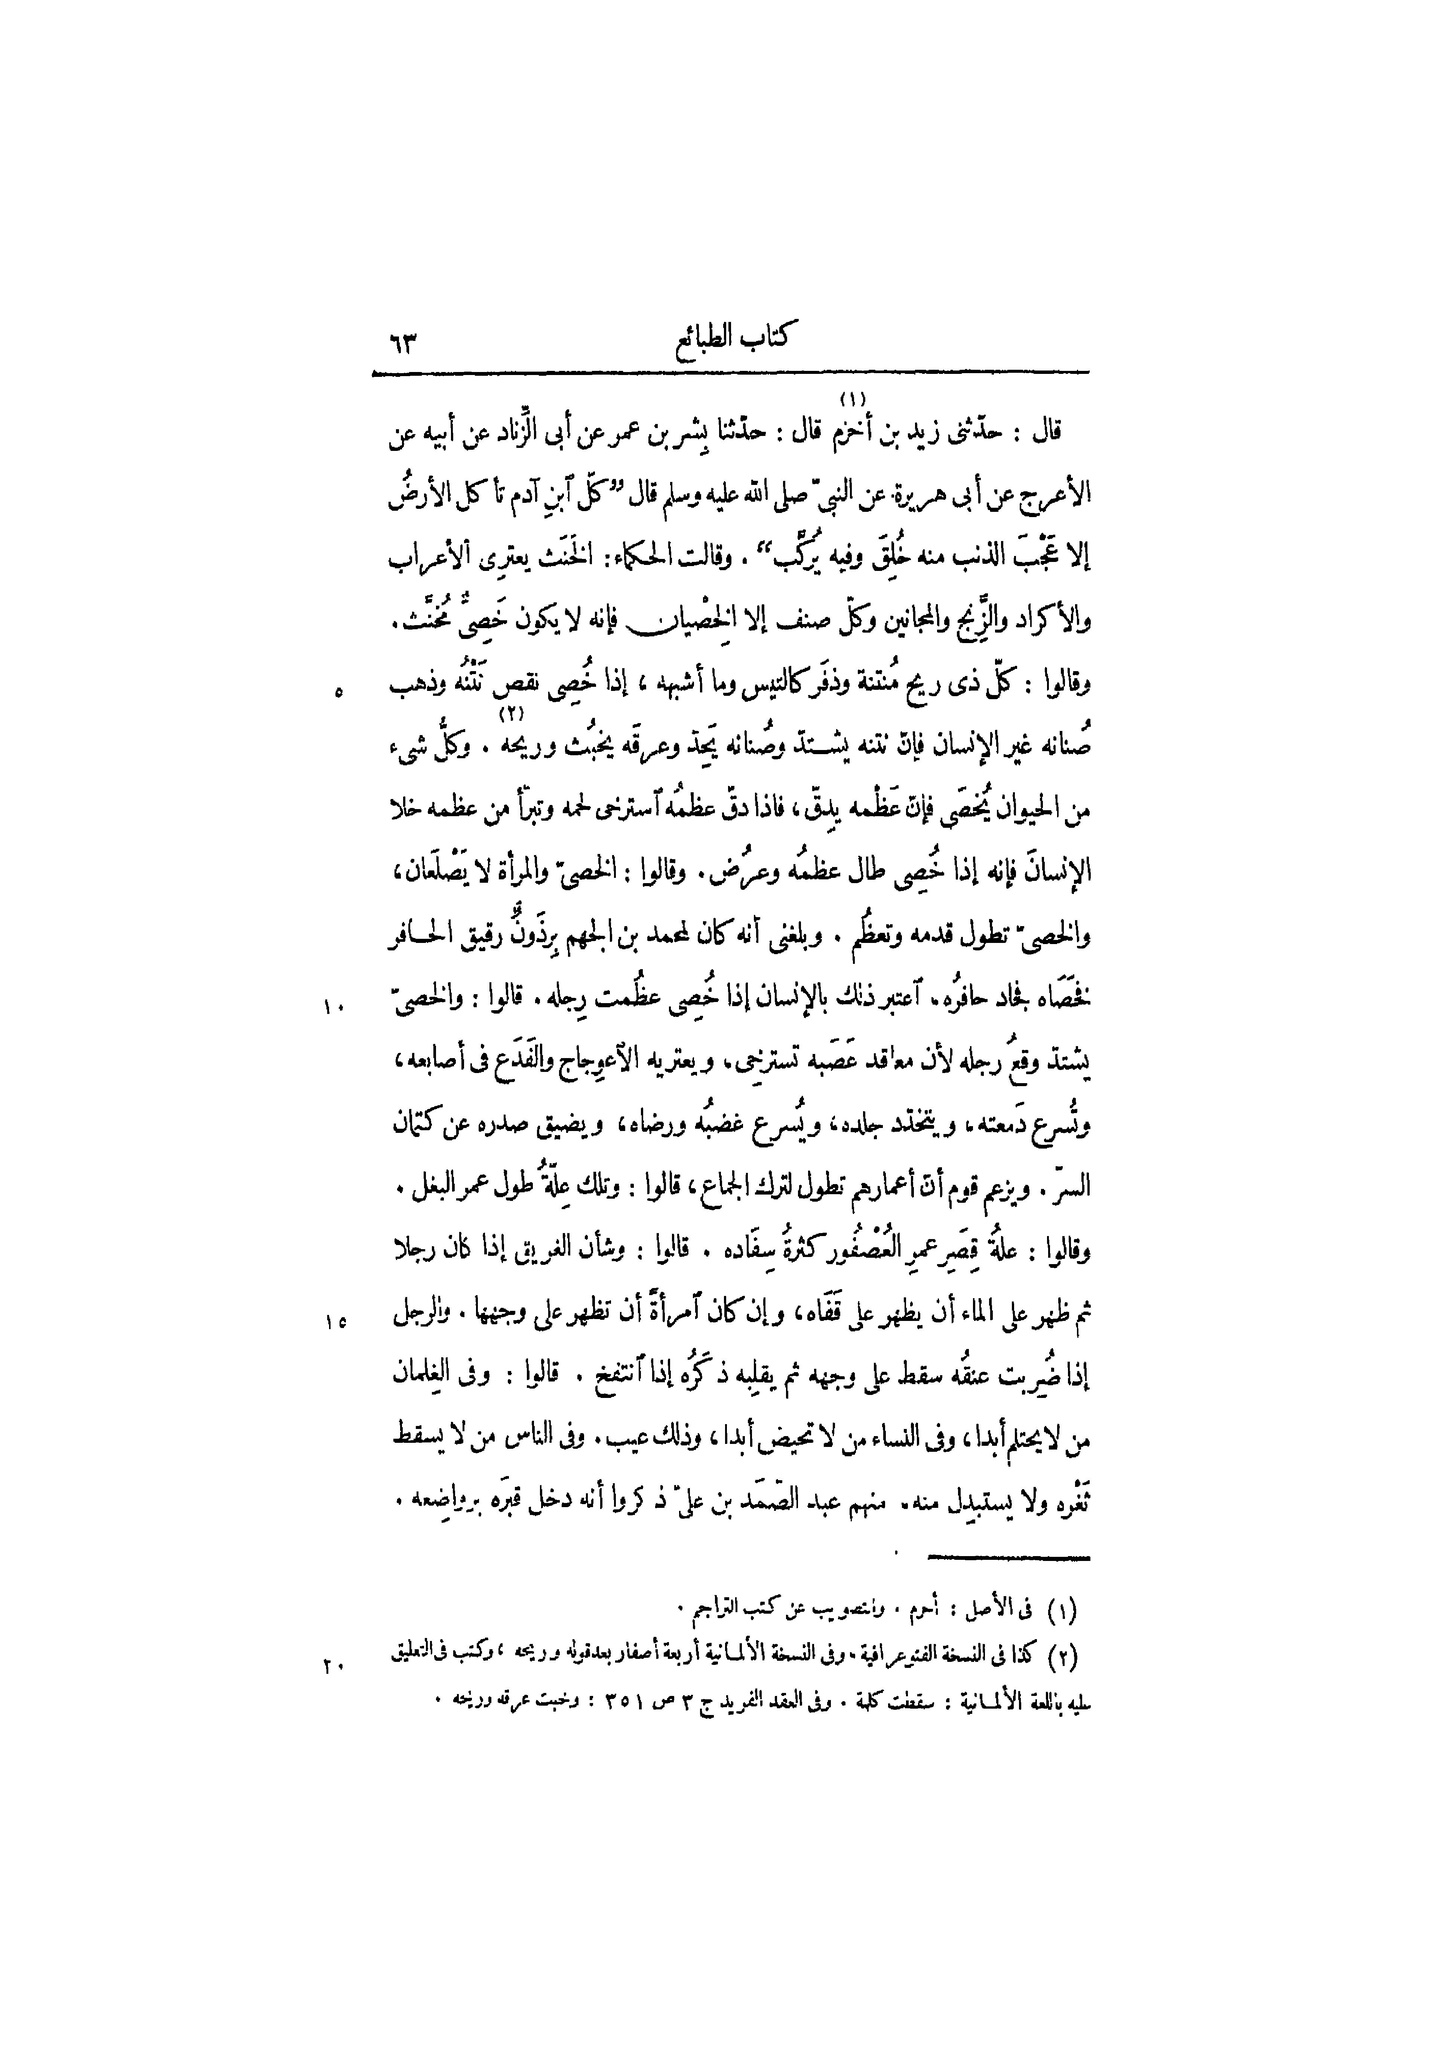 كتاب الطبائع ٦٣
(١)
قال : حدّثنى زيد بن أخزم قال : حدّثنا بِشر بن عمر عن أبى الزِّناد عن أبيه عن
الأعرج عن أبى هريرة عن النبىّ صلى الله عليه وسلم قال ”كلّ آبنِ آدم تأكل الأرضُ
إلا عَجْبَ الذنب منه خُلِقَ وفيه يُركَّب“ . وقالت الحكماء : الخَنَث يعترِى الأعراب
والأكراد والزِّنج والمجانين وكلّ صنف إلا الخِصْيان فإنه لا يكون خَصِىٌّ مُخنَّث .
وقالوا : كلّ ذى ريح مُنتنة وذفَر كالتيس وما أشبهه ، إذا خُصِى نقص نَتْنُه وذهب ٥
(٢)
صُنانه غير الإنسان فإنّ نتنه يشتدّ وصُنانه يَحِدّ وعرقَه يخبُث وريحه . وكلُّ شىء
من الحيوان يُخصَى فإنّ عَظْمه يدِقّ ، فاذا دقّ عظمُه آسترخى لحمه وتبرّأ من عظمه خلا
الإنسانَ فإنه إذا خُصِى طال عظمُه وعرُض . وقالوا : الخصىّ والمرأة لا يَصْلَعان ،
والخصىّ تطول قدمه وتعظُم . وبلغنى أنه كان لمحمد بن الجهم بِرذَونٌ رقيق الحافر
فخَصَاه فجاد حافرُه . آعتبر ذلك بالإنسان إذا خُصِى عظُمت رِجله . قالوا : والخصىّ ١٠
يشتدّ وقعُ رجله لأن معاقد عَصَبه تسترخِى ، ويعتريه الآعوِجاج والفَدَع فى أصابعه ،
وتُسرع دَمعته ، ويتخدّد جلده ، ويُسرع غضبُه ورضاه ، ويضيق صدره عن كتمان
السرّ . ويزعم قوم أنّ أعمارهم تطول لترك الجماع ، قالوا : وتلك عِلّةُ طول عمر البغل .
وقالوا : علةُ قِصَرِ عمرِ العُصْفُور كثرةُ سِفَاده . قالوا : وشأن الغريق إذا كان رجلا
ثم ظهر على الماء أن يظهر على قَفَاه ، وإن كان آمرأةً أن تظهر على وجهها . والرجل ١٥
إذا ضُرِبت عنقُه سقط على وجهه ثم يقلِبه ذكَرُه إذا آنتفخ . قالوا : وفى الغِلمان
من لا يحتلم أبدا ، وفى النساء من لا تحيض أبدا ، وذلك عيب . وفى الناس من لا يسقط
ثَغْره ولا يستبدِل منه . منهم عبد الصّمَد بن علىّ ذكروا أنه دخل قبرَه برواضِعه .
(١) فى الأصل : أحرم . والتصويب عن كتب التراجم .
(٢) كذا فى النسخة الفتوغرافية . وفى النسخة الألمانية أربعة أصفار بعد قوله وريحه ، وكتب فى التعليق ٢٠
عليه باللغة الألمانية : سقطت كلمة . وفى العقد الفريد ج ٣ ص ٣٥١ : وخبث عرقه وريحه .